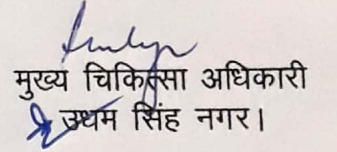 मुख्य चिकित्सा अधिकारी
उधम सिंह नगर।